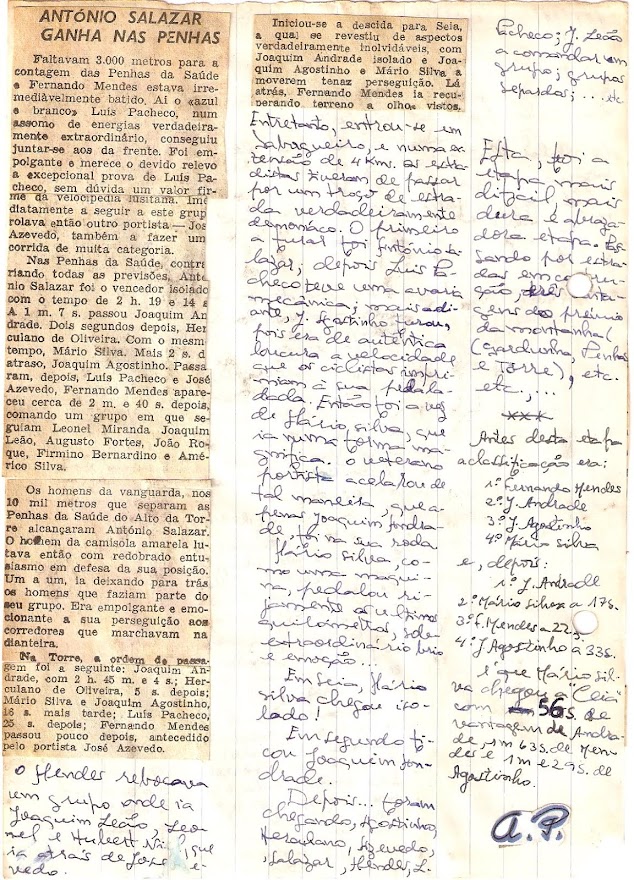 ANTÓNIO SALAZAR
GANHA NAS PENHAS
Faltavam 3.000 metros para a
contagem das Penhas da Saúde
e Fernando Mendes estava irre-
mediàvelmente batido. Aí o «azul
e branco» Luís Pacheco, num
assomo de energias verdadeira-
mente extraordinário, conseguiu
juntar-se aos da frente. Foi em-
polgante e merece o devido relevo
a excepcional prova de Luís Pa-
checo, sem dúvida um valor fir-
me da velocipedia lusitana. Ime
diatamente a seguir a este grup
rolava então outro portista — Jos
Azevedo, também a fazer um
corrida de muita categoria.
Nas Penhas da Saúde, contra
riando todas as previsões, Antó
nio Salazar foi o vencedor isolado
com o tempo de 2 h. 19 e 14 s
A 1 m. 7 s. passou Joaquim An
drade. Dois segundos depois, Her
culano de Oliveira. Com o mesm
tempo, Mário Silva. Mais 2 s. d
atraso, Joaquim Agostinho. Passa
ram, depois, Luís Pacheco e José
Azevedo, Fernando Mendes apare-
ceu cerca de 2 m. e 40 s. depois,
comando um grupo em que se-
guiam Leonel Miranda Joaquim
Leão, Augusto Fortes, João Ro-
que, Firmino Bernardino e Amé-
rico Silva.
Os homens da vanguarda, nos
10 mil metros que separam as
Penhas da Saúde do Alto da Tor-
re alcançaram António Salazar.
O homem da camisola amarela lu-
tava então com redobrado entu-
siasmo em defesa da sua posição.
Um a um, ia deixando para trás
os homens que faziam parte do
seu grupo. Era empolgante e emo-
cionante a sua perseguição aos
corredores que marchavam na
dianteira.
Na Torre, a ordem de passa-
gem foi a seguinte: Joaquim An-
drade, com 2 h. 45 m. e 4 s.; Her-
culano de Oliveira, 5 s. depois;
Mário Silva e Joaquim Agostinho,
16 s. mais tarde; Luís Pacheco,
25 s. depois; Fernando Mendes
passou pouco depois, antecedido
pelo portista José Azevedo.
O Mendes rebocava
um grupo onde ia
Joaquim Leão, Leo-
nel e Hubert, que
ia atrás de José
vedo.
Iniciou-se a descida para Seia,
a qual se revestiu de aspectos
verdadeiramente inolvidáveis, com
Joaquim Andrade isolado e Joa-
quim Agostinho e Mário Silva a
moverem tenaz perseguição. Lá
atrás, Fernando Mendes ia recu-
perando terreno a olhos vistos.
Entretanto, entrou-se em
, e numa ex-
tensão de 4 Km. os
distas tiveram de passar
por um troço de estra-
da verdadeiramente
demoníaco. O primeiro
a furar foi António Sa-
lazar; depois Luís Pa-
checo teve uma avaria
mecânica; mais adi-
ante, J. Agostinho furou,
pois era de autêntica
loucura a velocidade
que os ciclistas impri-
miam à sua pedala-
dada. Então foi a vez
de Mário Silva, que
ia numa forma ma-
gnífica. O veterano
portista acelarou de
tal maneira, que a-
penas Joaquim Andra-
de, foi na sua roda
Mário Silva, co-
mo uma máqui-
na, pedalou ri-
jamente os últimos
quilómetros, sob
extraordinário brio
e emoção...
Em Seia, Mário
Silva chegou iso-
lado!
Em segundo fi-
cou Joaquim An-
drade.
Depois... foram
chegando, Agostinho,
Herculano, Azevedo,
Salazar, Mendes, L.
Pacheco; J. Leão
a comandar um
grupo; grupos
separados; ... etc
Esta, foi a
etapa mais
difícil, mais
dura e abraza-
dora etapa. Pas-
sando por estra-
das em constru-
ção, três conta-
gens do prémio
da montanha (
(Gardunha, Penhas
e Torre), etc.
etc,...
xxx
Antes desta etapa
a classificação era:
1º Fernando Mendes
2º J. Andrade
3º J. Agostinho
4º Mário Silva
e, depois:
1º J. Andrade
2º Mário Silva a 17s.
3º F. Mendes a 22s.
4º J Agostinho a 33s.
é que Mário Sil-
va chegou a "Ceia"
com 56 s. de
vantagem de Andra-
de, 1m 63s. de Men-
des e 1m e 29s. de
Agostinho.
A.P.